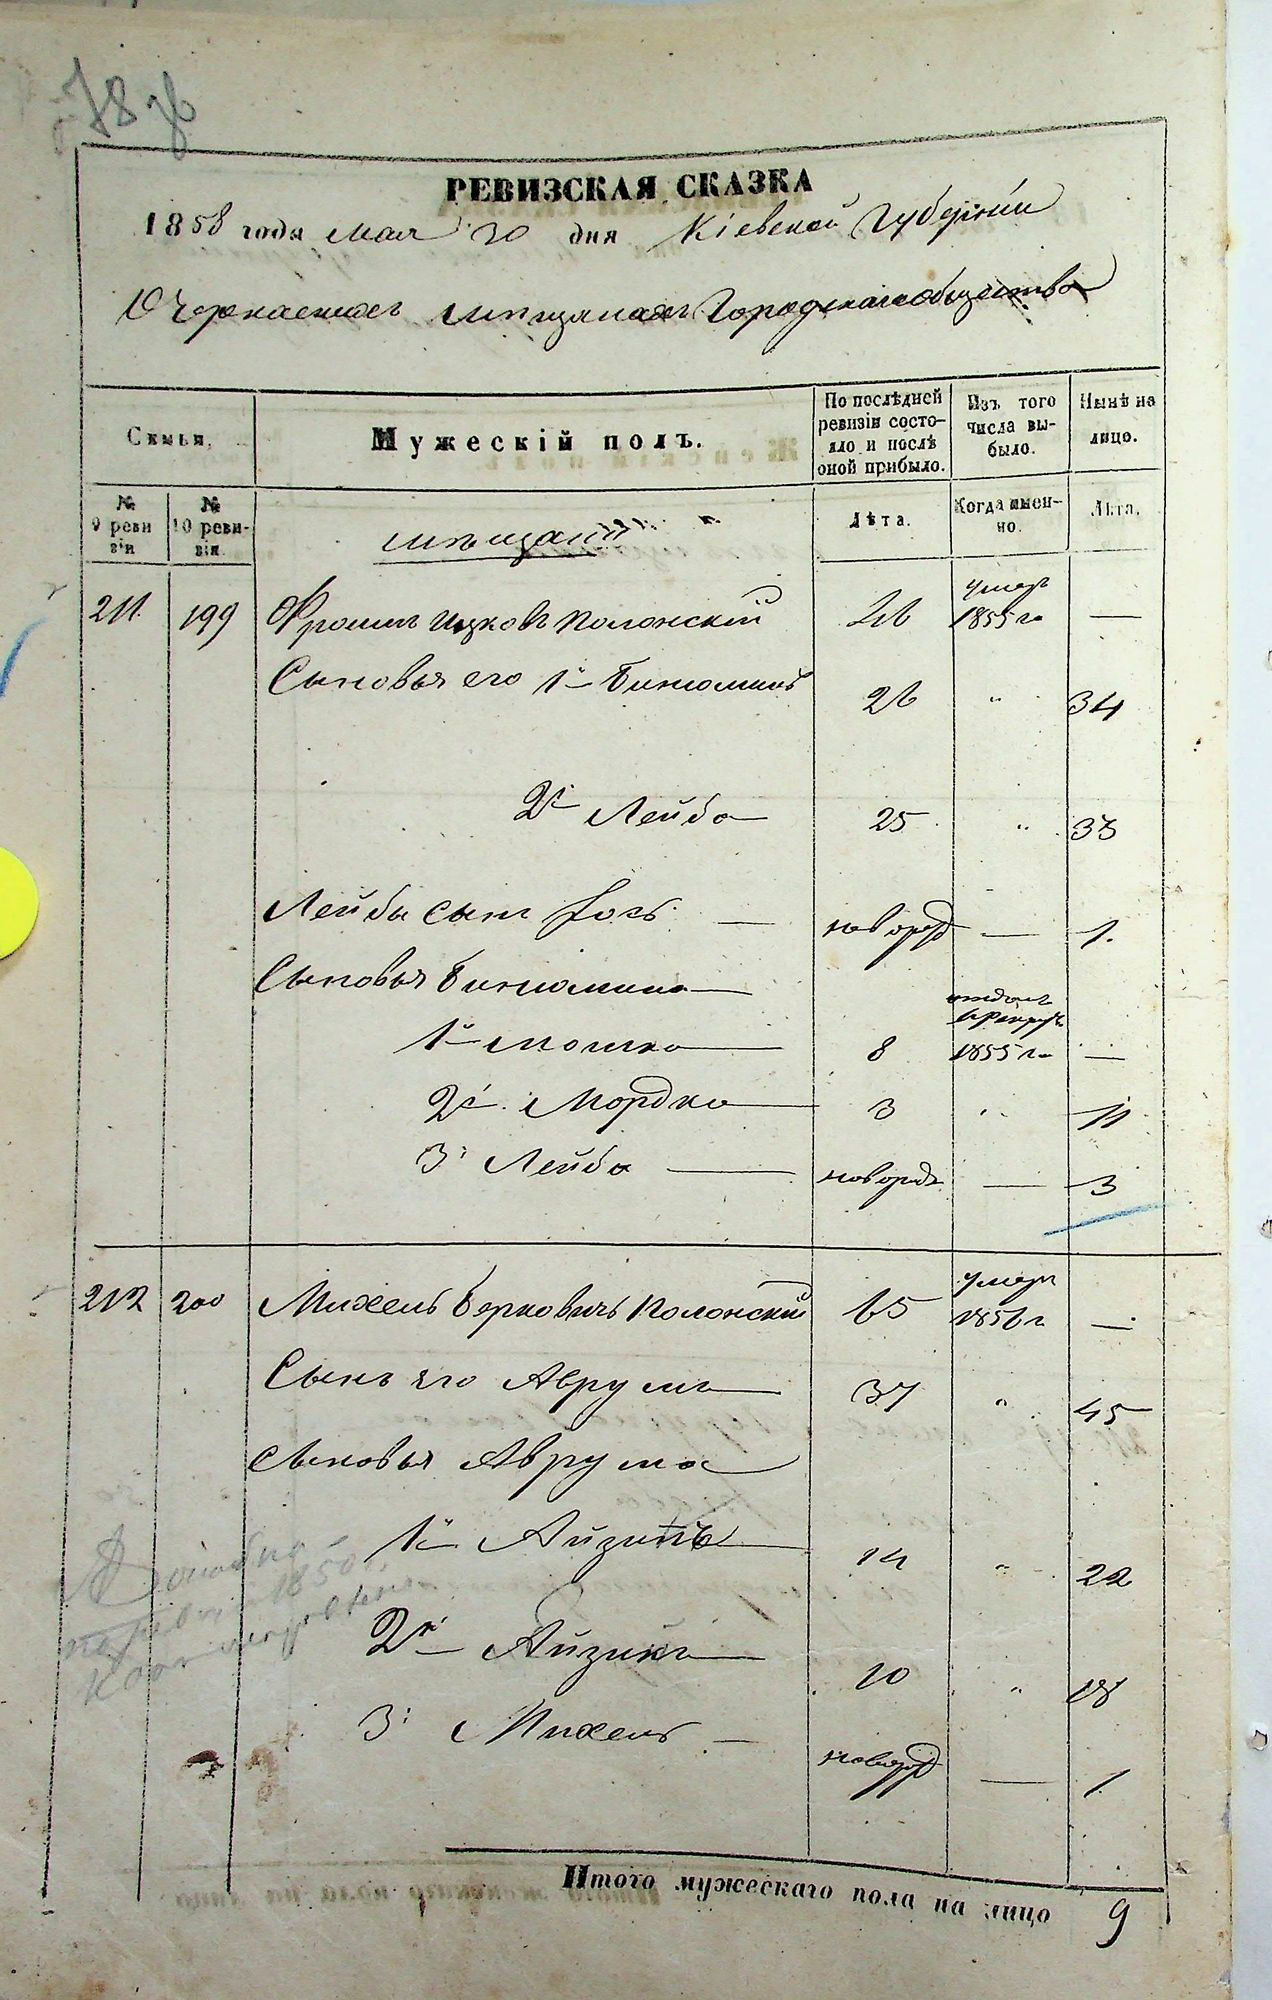 78
РЕВИЗСКАЯ СКАЗКА
1858 года мая 20 дня Кіевской Губерніи
О Черкаскихъ мѣщанахъ Городскаго общества
Семьи.
Мужескій полъ.
По послѣдней ревизіи состояло и послѣ оной прибыло.
Изъ того числа выбыло.
Нынѣ на лицо.
№ 9 ревизіи
№ 10 ревизіи.
мѣщане
Лѣта.
Когда именно.
Лѣта.
211. 199 Фроимъ Ицковъ Полонскій 46 умеръ 1855 го —
Сыновья его 1й Бинюминъ 26 " 34
2й Лейба 25 " 33
Лейбы сынъ — новорожд — 1.
Сыновья Бинюмина
1й Мошко 8 отданъ в рекруты 1855 го —
2й Мордко 3 " 11
3й Лейба новорожд — 3
212 200 Михель Берковичъ Полонскій 65 умеръ 1856 г —
Сынъ его Аврумъ 37 " 45
Сыновья Аврума
1й 14 " 22
2й Айзикъ 10 " 18
3й Михель — новорожд — 1
Итого мужескаго пола на лицо 9